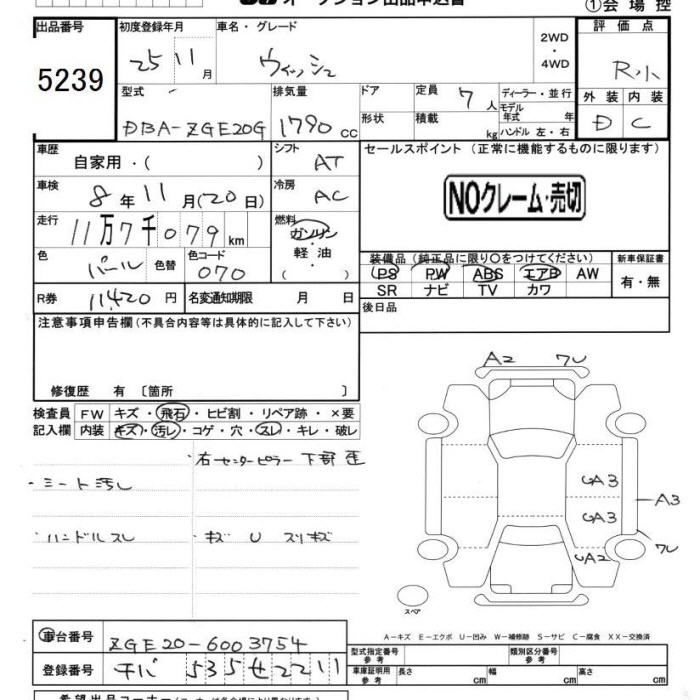 オークション出品申込書
①会場控
出品番号
5239
初度登録年月
25 11月
車名・グレード
ウィッシュ
2WD・4WD
評価点
R小
外装 内装
D C
型式
DBA-ZGE20G
排気量
1790cc
ドア
形状
定員
7人
積載
kg
ディーラー・並行
モデル年式 年
ハンドル 左・右
車歴
自家用・( )
シフト
AT
セールスポイント(正常に機能するものに限ります)
NOクレーム・売切
車検
8年11月(20日)
冷房
AC
走行
11万7千079km
燃料
ガソリン・軽油・( )
色
パール
色替
色コード
070
装備品(純正品に限り○をつけてください)
PS PW ABS エアB AW
SR ナビ TV カワ
新車保証書
有・無
R券
11420円
名変通知期限 月 日
後日品
注意事項申告欄(不具合内容等は具体的に記入して下さい)
修復歴 有〔箇所 〕
検査員記入欄
FW キズ・飛石・ヒビ割・リペア跡・×要
内装 キズ・汚レ・コゲ・穴・スレ・キレ・破レ
・右センターピラー下部歪
・シート汚レ
・ハンドルスレ
・キズ U スリキズ
A2 フU
GA3
A3
GA3
フU
GA2
スペア
A-キズ E-エクボ U-凹み W-補修跡 S-サビ C-腐食 XX-交換済
車台番号
ZGE20-6003754
登録番号
チバ 535せ2211
型式指定番号 参考
類別区分番号 参考
車庫証明用 参考
長さ cm 幅 cm 高さ cm
希望出品コーナー